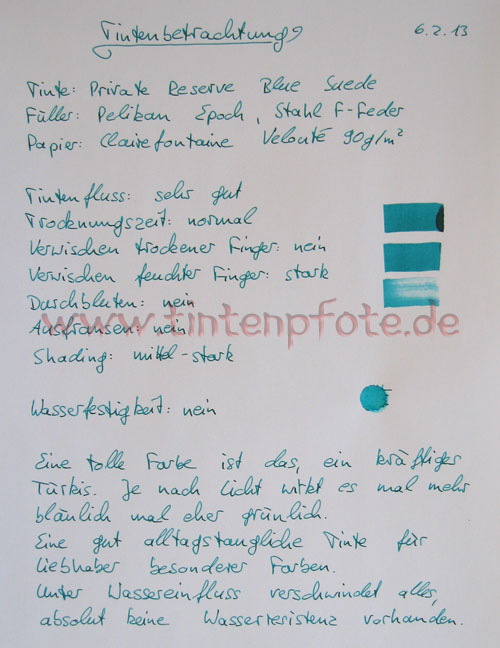 Tintenbetrachtung 6.2.13
Tinte: Private Reserve Blue Suede
Füller: Pelikan Epoch, Stahl F-Feder
Papier: Clairefontaine Velouté 90g/m²
Tintenfluss: sehr gut
Trocknungszeit: normal
Verwischen trockener Finger: nein
Verwischen feuchter Finger: stark
Durchbluten: nein
www.tintenpfote.de
Ausfransen: nein
Shading: mittel-stark
Wasserfestigkeit: nein
Eine tolle Farbe ist das, ein kräftiges
Türkis. Je nach Licht wirkt es mal mehr
bläulich mal eher grünlich.
Eine gut alltagstaugliche Tinte für
Liebhaber besonderer Farben.
Unter Wassereinfluss verschwindet alles,
absolut keine Wasserresistenz vorhanden.